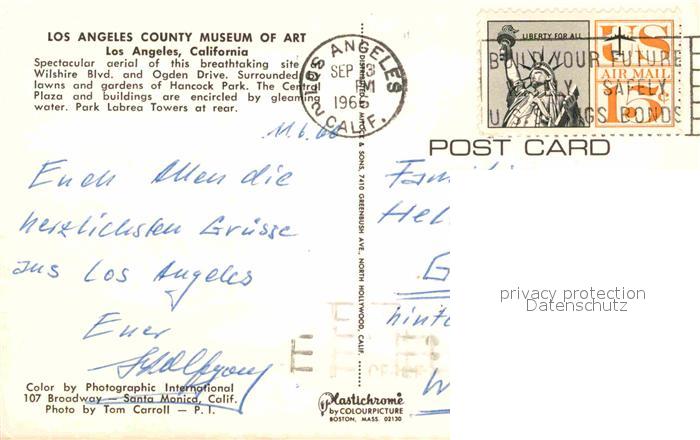 LOS ANGELES COUNTY MUSEUM OF ART
Los Angeles, California
Spectacular aerial of this breathtaking site
Wilshire Blvd. and Ogden Drive. Surrounded
lawns and gardens of Hancock Park. The Central
Plaza and buildings are encircled by gleaming
water. Park Labrea Towers at rear.
LOS ANGELES
SEP 3
PM
196
CALIF.
LIBERTY FOR ALL
US
AIR MAIL
15¢
BUILD YOUR FUTURE
SAFELY
U.S. SAVINGS BONDS
POST CARD
Euch Allen die
herzlichsten Grüsse
aus Los Angeles
Euer
Fam
Hel
G
hint
DISTRIBUTED BY MITOCK & SONS, 7410 GREENBUSH AVE., NORTH HOLLYWOOD, CALIF.
privacy protection
Datenschutz
Color by Photographic International
107 Broadway — Santa Monica, Calif.
Photo by Tom Carroll — P. I.
Plastichrome
by COLOURPICTURE
BOSTON, MASS. 02130